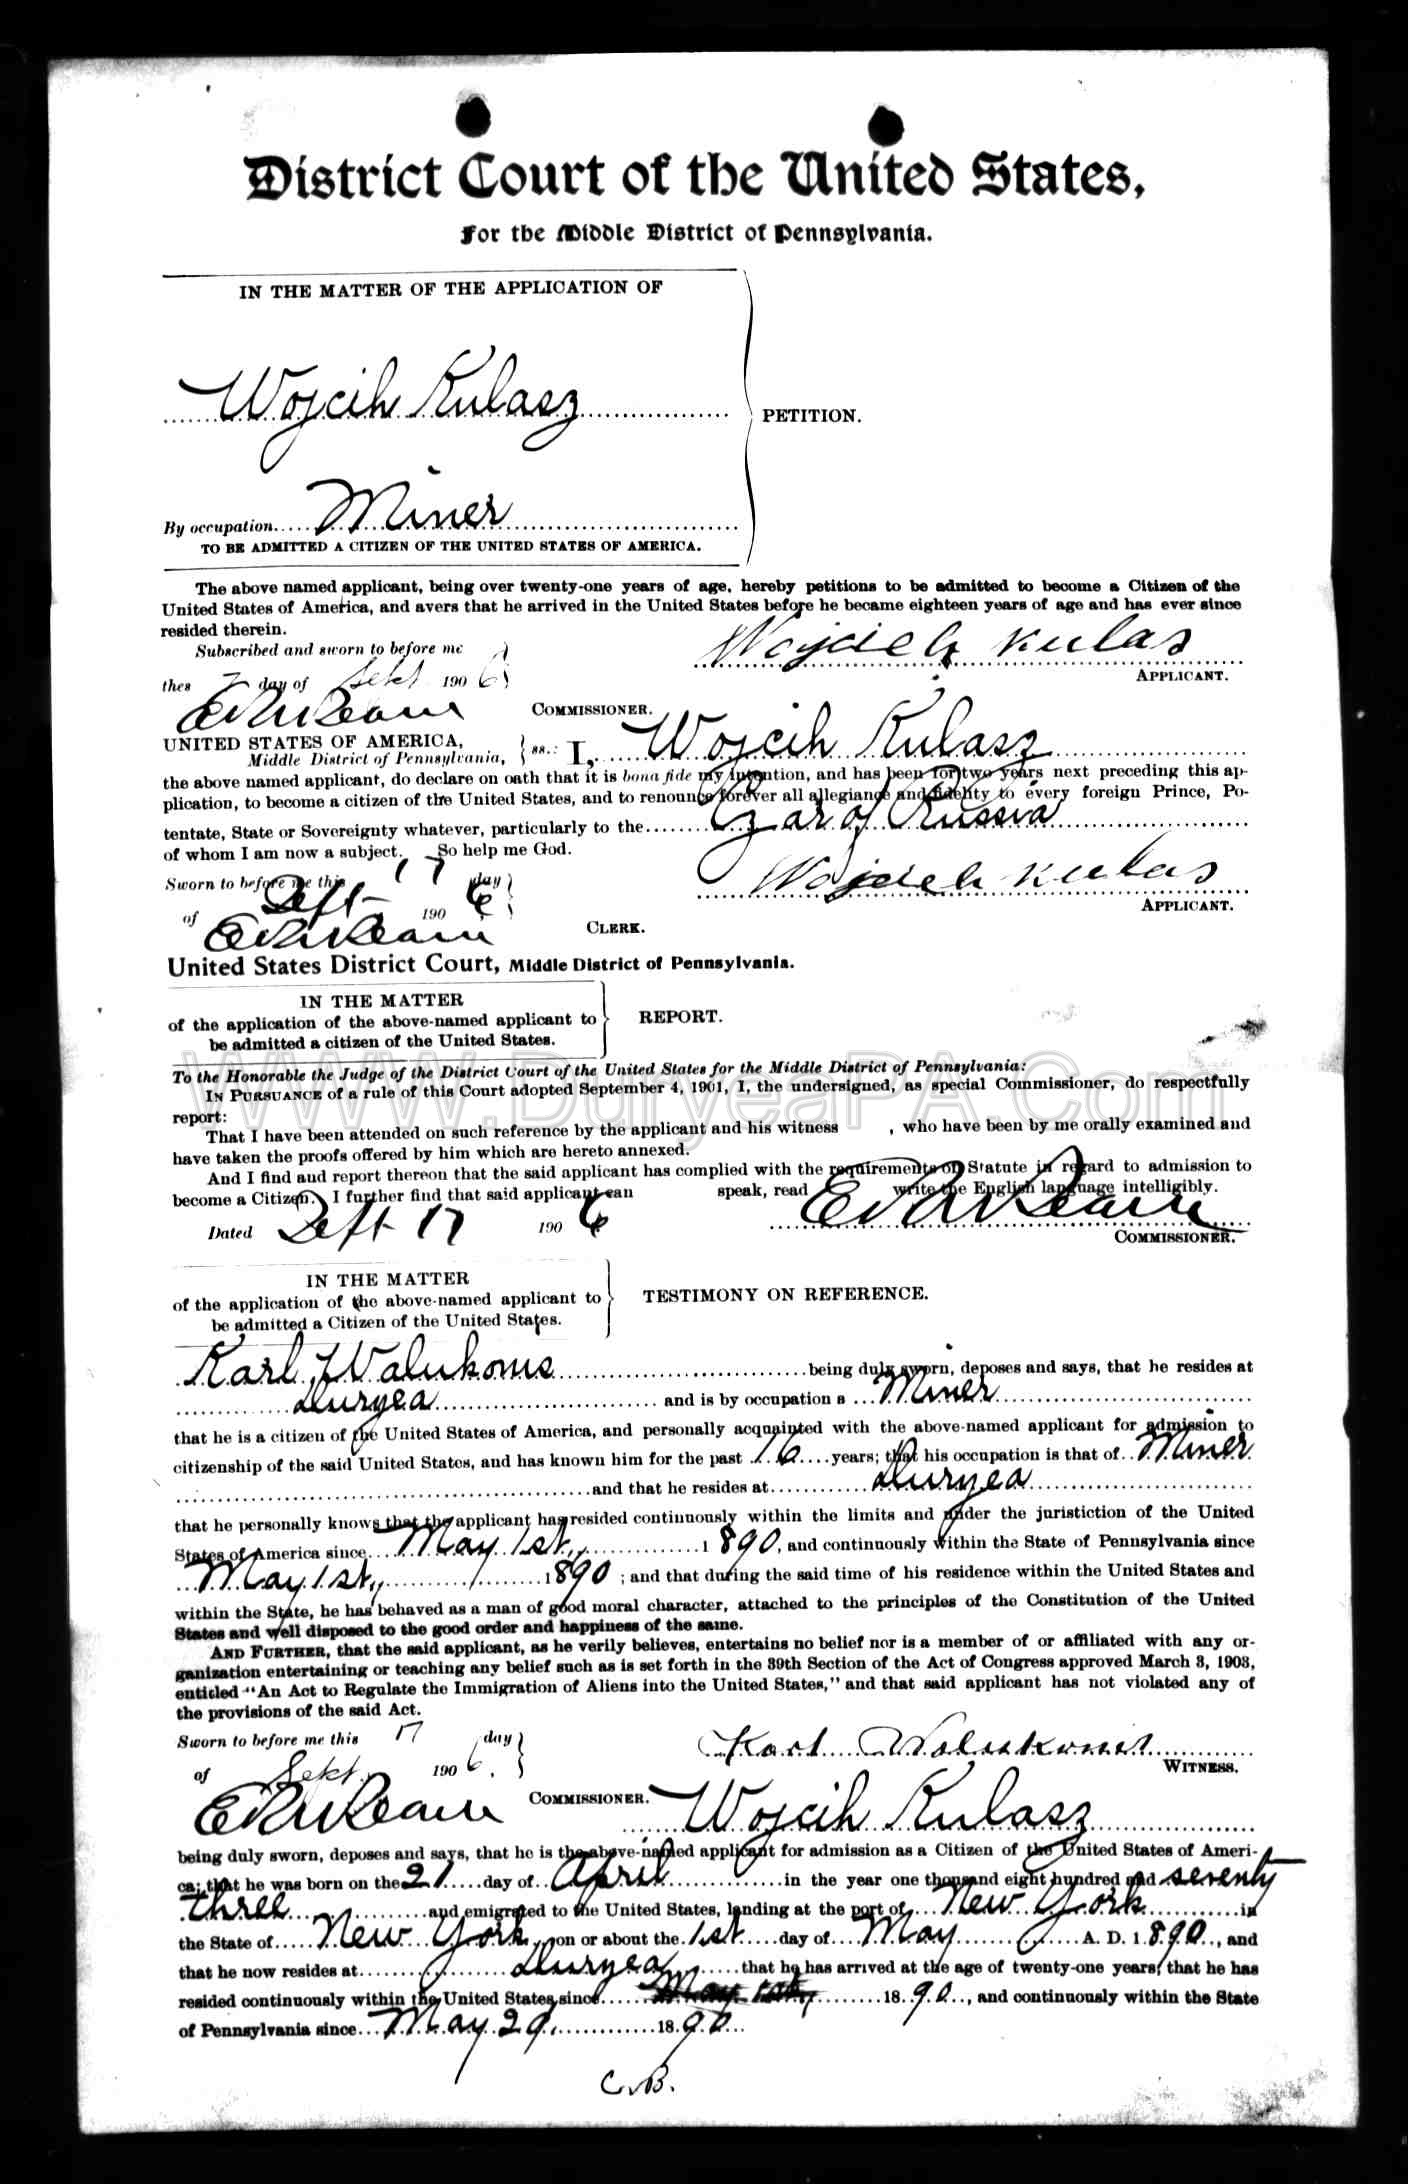 District Court of the United States,
For the Middle District of Pennsylvania.
IN THE MATTER OF THE APPLICATION OF
Wojcih Kulasz
PETITION.
By occupation Miner
TO BE ADMITTED A CITIZEN OF THE UNITED STATES OF AMERICA.
The above named applicant, being over twenty-one years of age, hereby petitions to be admitted to become a Citizen of the
United States of America, and avers that he arrived in the United States before he became eighteen years of age and has ever since
resided therein.
Subscribed and sworn to before me
Wojcieh Kulas
APPLICANT.
thes day of Sept 1906
COMMISSIONER.
UNITED STATES OF AMERICA,
Middle District of Pennsylvania, ss.: I, Wojcih Kulasz
the above named applicant, do declare on oath that it is bona fide my intention, and has been for two years next preceding this ap-
plication, to become a citizen of the United States, and to renounce forever all allegiance and fidelity to every foreign Prince, Po-
tentate, State or Sovereignty whatever, particularly to the Czar of Russia
of whom I am now a subject. So help me God.
Sworn to before me this 17 day
Wojcieh Kulas
of Sept 1906
APPLICANT.
CLERK.
United States District Court, Middle District of Pennsylvania.
IN THE MATTER
of the application of the above-named applicant to
be admitted a citizen of the United States.
REPORT.
WWW.DuryeaPA.Com
To the Honorable the Judge of the District Court of the United States for the Middle District of Pennsylvania:
IN PURSUANCE of a rule of this Court adopted September 4, 1901, I, the undersigned, as special Commissioner, do respectfully
report:
That I have been attended on such reference by the applicant and his witness , who have been by me orally examined and
have taken the proofs offered by him which are hereto annexed.
And I find and report thereon that the said applicant has complied with the requirements of Statute in regard to admission to
become a Citizen. I further find that said applicant can speak, read write the English language intelligibly.
Dated Sept 17 1906
COMMISSIONER.
IN THE MATTER
of the application of the above-named applicant to
be admitted a Citizen of the United States.
TESTIMONY ON REFERENCE.
Karl Walukonis being duly sworn, deposes and says, that he resides at
Duryea and is by occupation a Miner
that he is a citizen of the United States of America, and personally acquainted with the above-named applicant for admission to
citizenship of the said United States, and has known him for the past 16 years; that his occupation is that of Miner
and that he resides at Duryea
that he personally knows that the applicant has resided continuously within the limits and under the juristiction of the United
States of America since May 1st, 1890, and continuously within the State of Pennsylvania since
May 1st, 1890; and that during the said time of his residence within the United States and
within the State, he has behaved as a man of good moral character, attached to the principles of the Constitution of the United
States and well disposed to the good order and happiness of the same.
AND FURTHER, that the said applicant, as he verily believes, entertains no belief nor is a member of or affiliated with any or-
ganization entertaining or teaching any belief such as is set forth in the 39th Section of the Act of Congress approved March 3, 1903,
entitled "An Act to Regulate the Immigration of Aliens into the United States," and that said applicant has not violated any of
the provisions of the said Act.
Sworn to before me this 17 day
Karl Walukonis
of Sept. 1906.
WITNESS.
COMMISSIONER.
Wojcih Kulasz
being duly sworn, deposes and says, that he is the above-named applicant for admission as a Citizen of the United States of Ameri-
ca; that he was born on the 21 day of April in the year one thousand eight hundred and seventy
three and emigrated to the United States, landing at the port of New York in
the State of New York, on or about the 1st day of May A. D. 1890, and
that he now resides at Duryea that he has arrived at the age of twenty-one years, that he has
resided continuously within the United States since May 1st, 1890, and continuously within the State
of Pennsylvania since May 29, 1890
C.B.